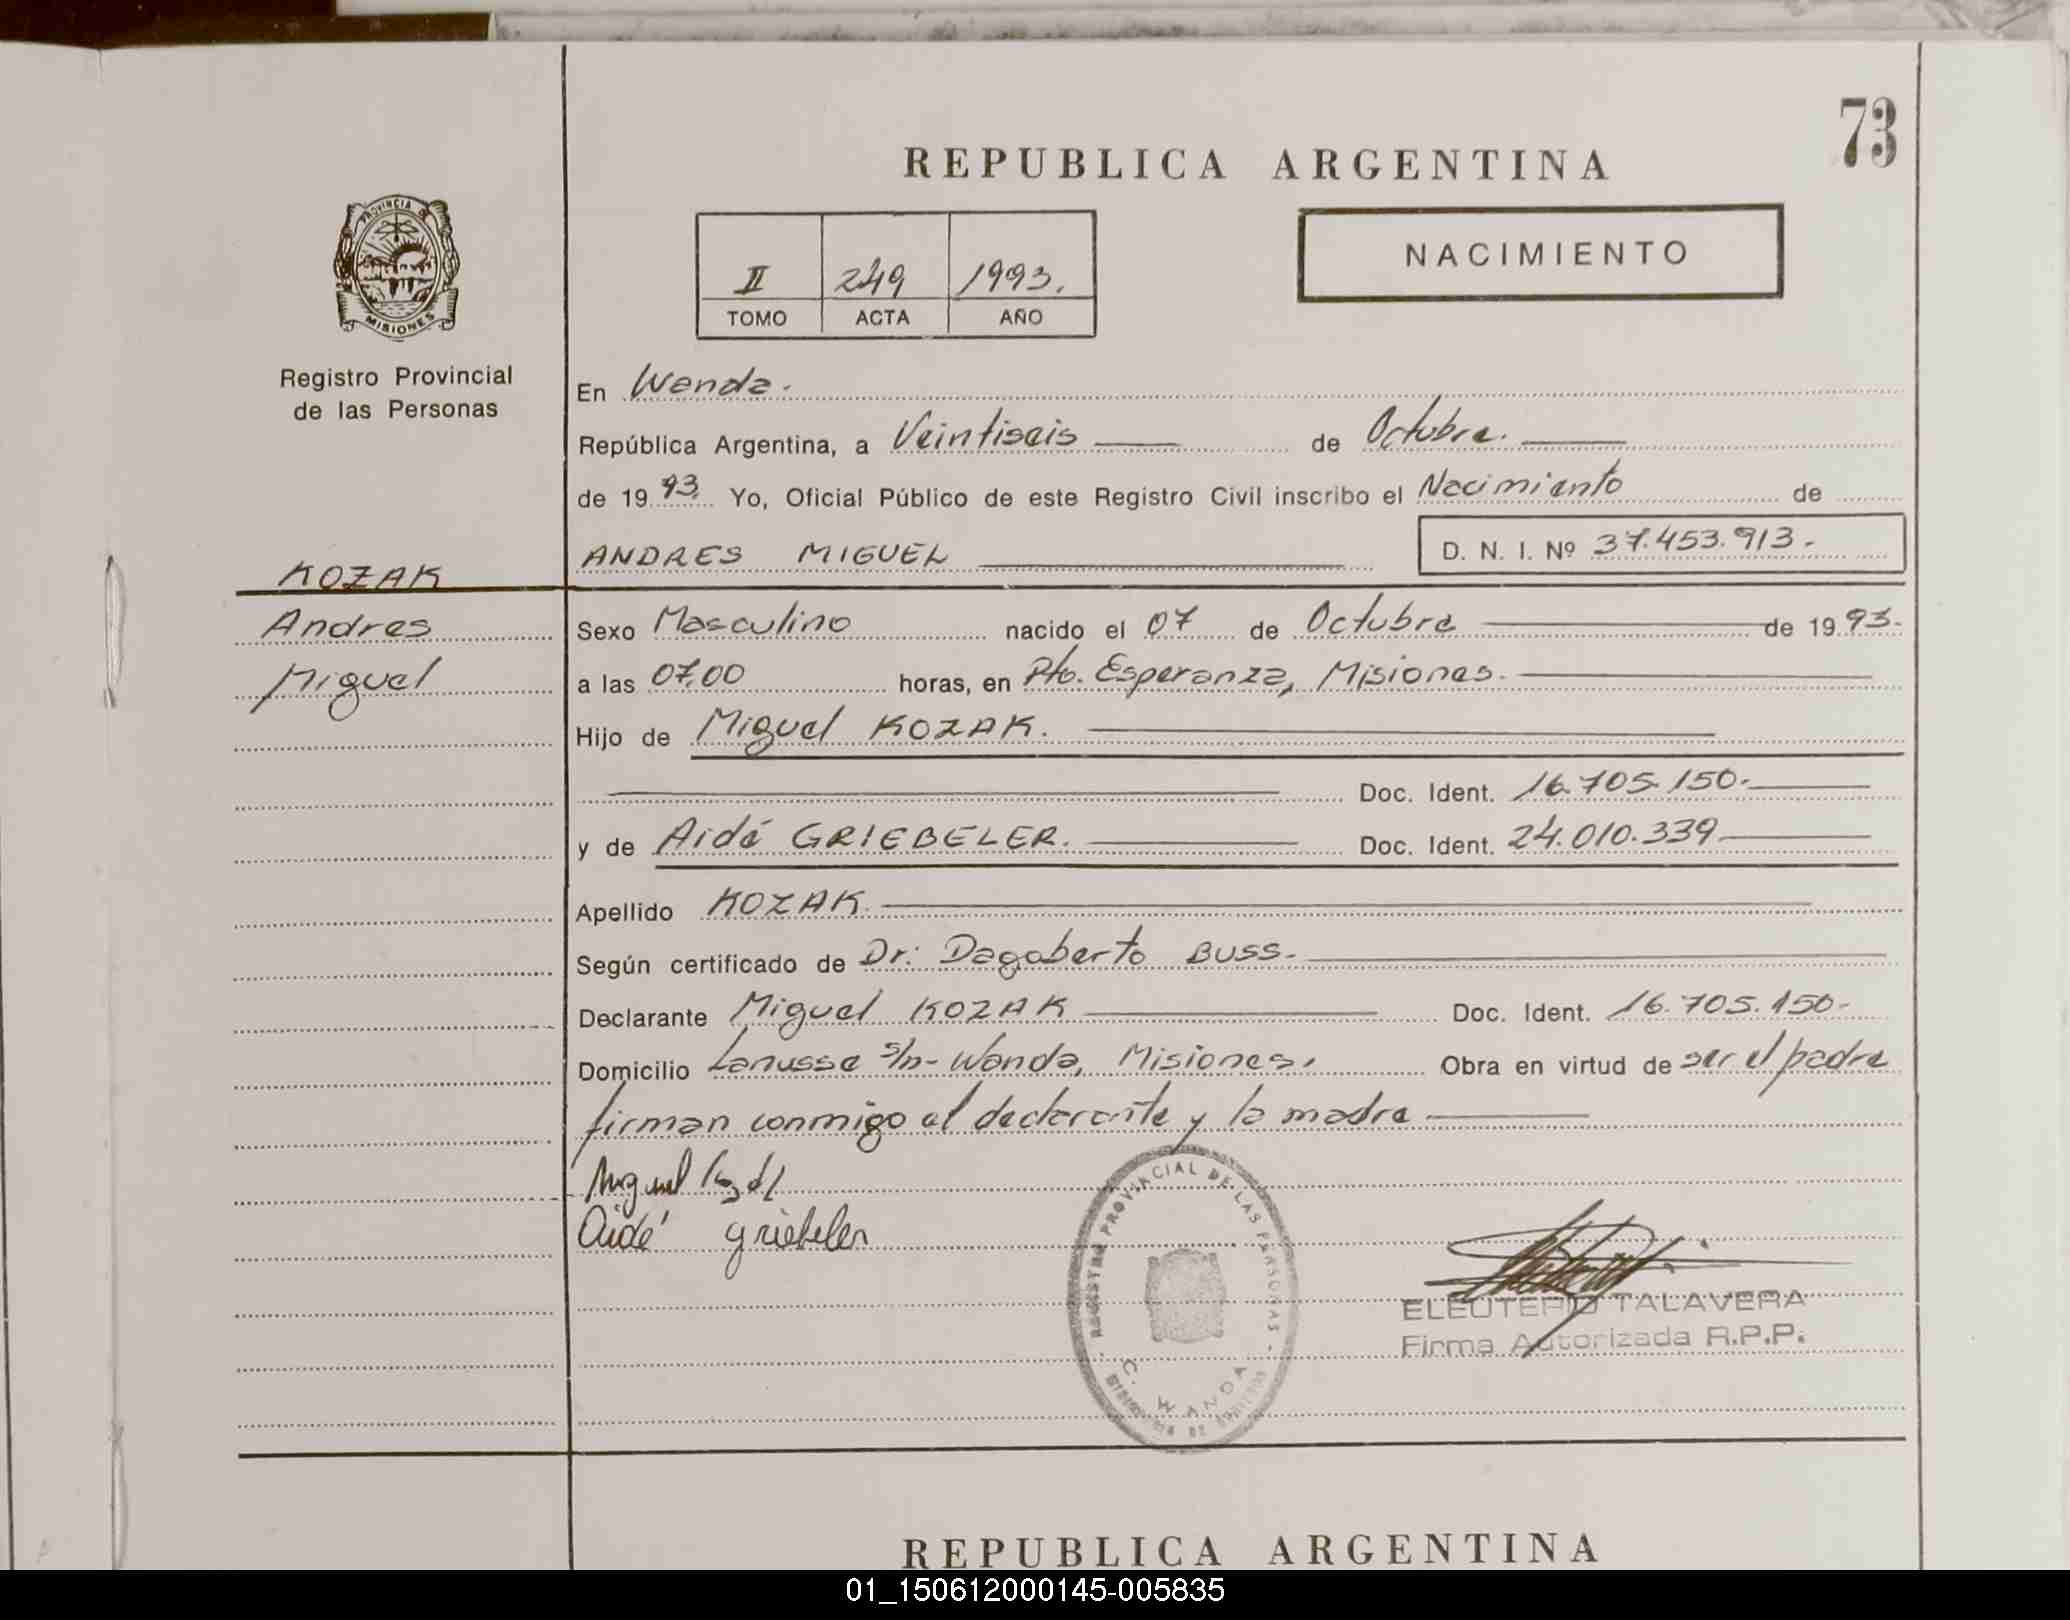 73
REPUBLICA ARGENTINA
PROVINCIA DE
MISIONES
Registro Provincial
de las Personas
II 249 1993.
TOMO ACTA AÑO
NACIMIENTO
En Wanda.
República Argentina, a Veintiseis de Octubre.
de 19 93. Yo, Oficial Público de este Registro Civil inscribo el Nacimiento de
ANDRES MIGUEL D. N. I. Nº 37.453.913.-
KOZAK
Andres
Miguel
Sexo Masculino nacido el 07 de Octubre de 19 93.
a las 07,00 horas, en Pto. Esperanza, Misiones.
Hijo de Miguel KOZAK.
Doc. Ident. 16.705.150.-
y de Aidé GRIEBELER. Doc. Ident. 24.010.339
Apellido KOZAK.
Según certificado de Dr: Dagoberto BUSS.-
Declarante Miguel KOZAK Doc. Ident. 16.705.150-
Domicilio Lanusse s/n- Wanda, Misiones. Obra en virtud de ser el padre
firman conmigo el declarante y la madre
Miguel
Aidé Griebeler
REGISTRO PROVINCIAL DE LAS PERSONAS
C. WANDA
ELEUTERIO TALAVERA
Firma Autorizada R.P.P.
REPUBLICA ARGENTINA
01_150612000145-005835